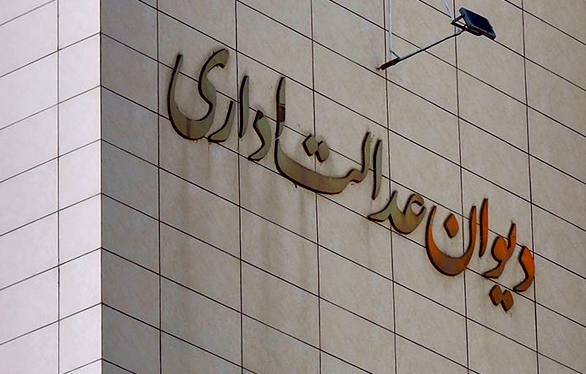 دیوان عدالت اداری